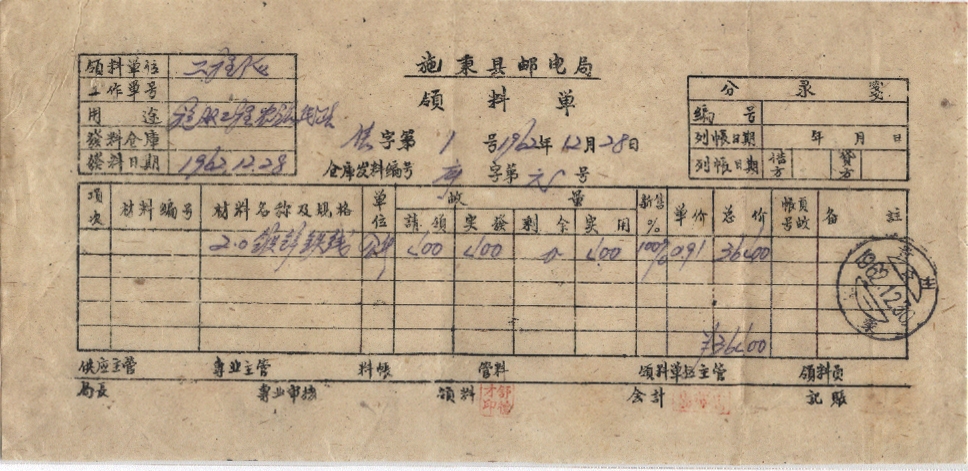 施秉县邮电局
领料单
领料单位
工作单号
用途
發料仓库
發料日期 1962.12.28
字第 1 号 1962年12月28日
仓库发料编号 字第 号
分录笺
编号
列帐日期 年 月 日
列帐日期 借方 贷方
項次 材料编号 材料名称及规格 单位 收量 新旧% 单价 总价 帐頁号数 备註
請领 实發 剩余 实用
2.0镀锌铁线 400 400 0 400 100% 0.91 364.00
¥364.00
供应主管 专业主管 料帐 管料 领料单位主管 领料员
局長 专业审核 领料 会計 記賬
1962.12.30